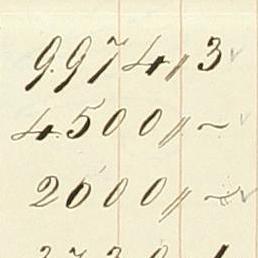 9974〃3
4500〃~
2000〃~